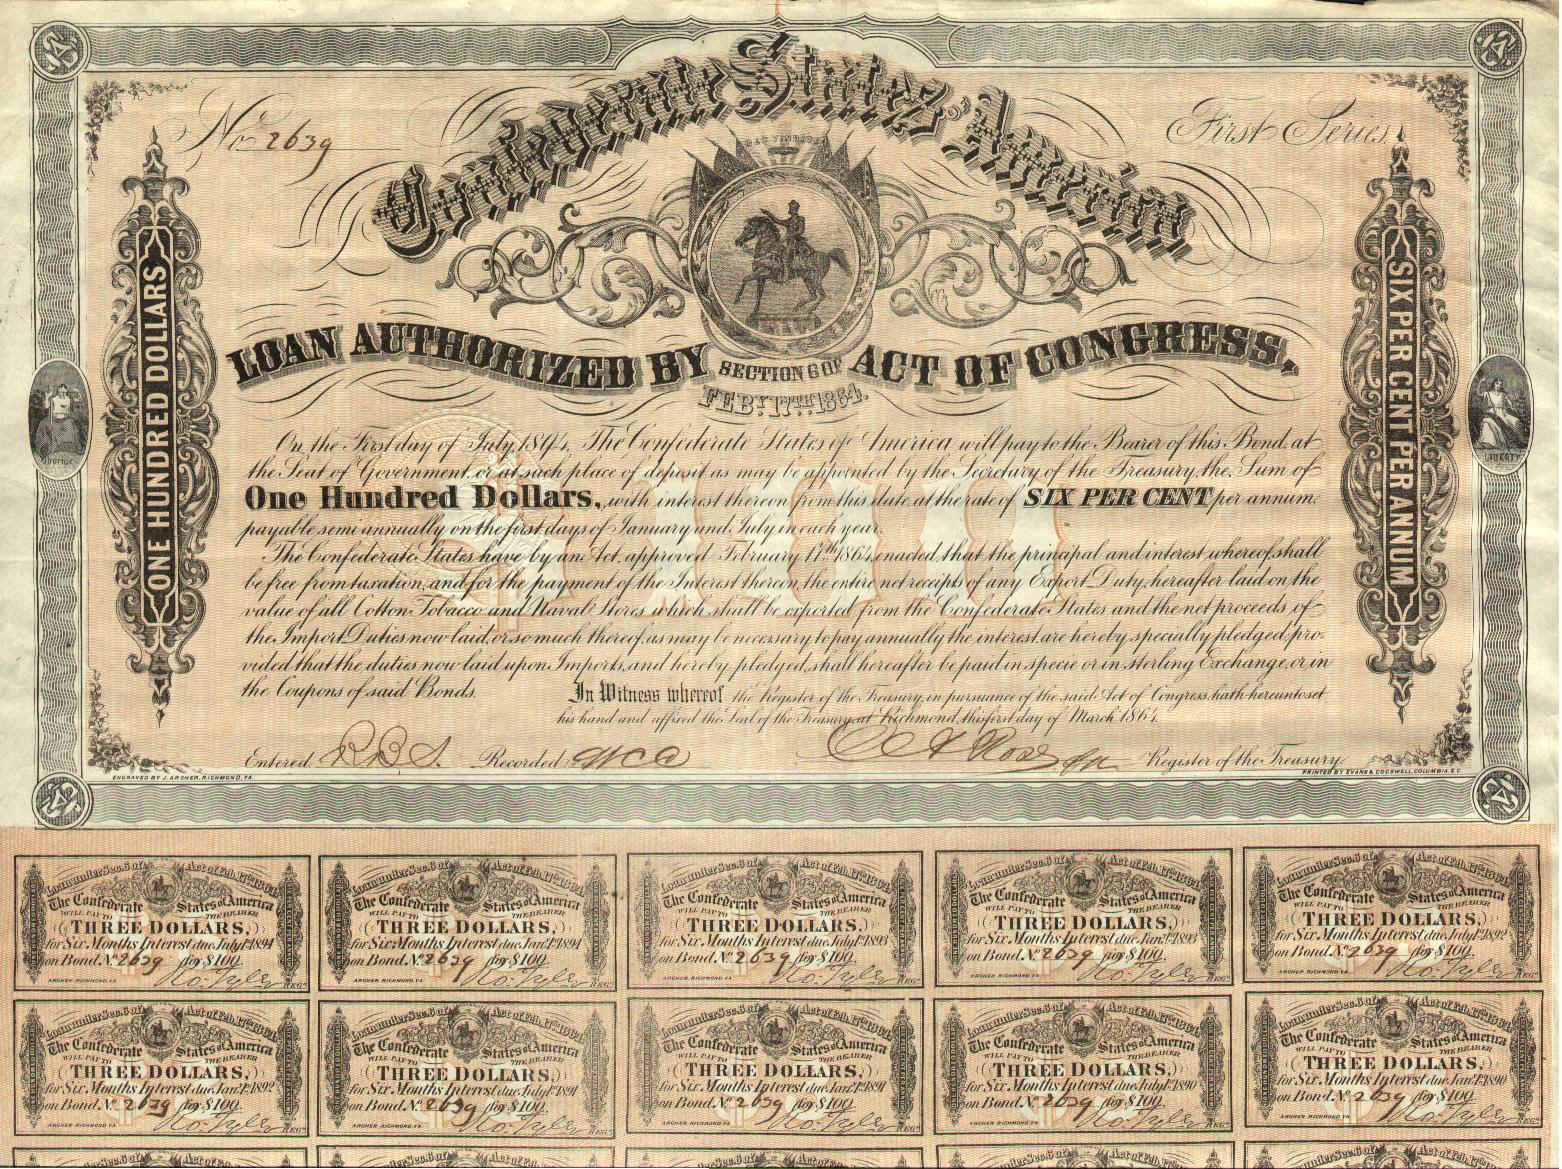 Confederate States of America
No. 2639
First Series.
LOAN AUTHORIZED BY SECTION 6 OF ACT OF CONGRESS,
FEBY. 17TH. 1864.
ONE HUNDRED DOLLARS
SIX PER CENT PER ANNUM
JUSTICE
LIBERTY
On the First day of July 1894, The Confederate States of America will pay to the Bearer of this Bond, at
the Seat of Government, or at such place of deposit as may be appointed by the Secretary of the Treasury, the Sum of
One Hundred Dollars, with interest thereon from this date, at the rate of SIX PER CENT per annum.
payable semi annually on the first days of January and July in each year.
The Confederate States have by an Act, approved February 17th 1864, enacted, that the principal and interest whereof, shall
be free from taxation, and for the payment of the Interest thereon, the entire net receipts of any Export Duty, hereafter laid on the
value of all Cotton, Tobacco and Naval Stores which shall be exported from the Confederate States and the net proceeds of
the Import Duties now laid, or so much thereof, as may be necessary to pay annually the interest, are hereby specially pledged, pro-
vided that the duties now laid upon Imports, and hereby pledged, shall hereafter be paid in specie or in sterling Exchange, or in
the Coupons of said Bonds.
In Witness whereof the Register of the Treasury, in pursuance of the said Act of Congress, hath hereunto set
his hand and affixed the Seal of the Treasury, at Richmond, this first day of March 1864.
Entered Recorded Register of the Treasury.
ENGRAVED BY J. ARCHER, RICHMOND, VA.
PRINTED BY EVANS & COGSWELL, COLUMBIA, S.C.
$100
Loan under Sec. 6 of Act of Feb. 17th. 1864.
The Confederate States of America
WILL PAY TO THE BEARER
THREE DOLLARS,
for Six Months Interest due July 1st. 1894
on Bond. No. 2639 for $100.
Ro. Tyler REGR.
ARCHER, RICHMOND, VA.
Loan under Sec. 6 of Act of Feb. 17th. 1864.
The Confederate States of America
WILL PAY TO THE BEARER
THREE DOLLARS,
for Six Months Interest due Jany. 1st. 1894
on Bond. No. 2639 for $100.
Ro. Tyler REGR.
ARCHER, RICHMOND, VA.
Loan under Sec. 6 of Act of Feb. 17th. 1864.
The Confederate States of America
WILL PAY TO THE BEARER
THREE DOLLARS,
for Six Months Interest due July 1st. 1893
on Bond. No. 2639 for $100.
Ro. Tyler REGR.
ARCHER, RICHMOND, VA.
Loan under Sec. 6 of Act of Feb. 17th. 1864.
The Confederate States of America
WILL PAY TO THE BEARER
THREE DOLLARS,
for Six Months Interest due Jany. 1st. 1893
on Bond. No. 2639 for $100.
Ro. Tyler REGR.
ARCHER, RICHMOND, VA.
Loan under Sec. 6 of Act of Feb. 17th. 1864.
The Confederate States of America
WILL PAY TO THE BEARER
THREE DOLLARS,
for Six Months Interest due July 1st. 1892
on Bond. No. 2639 for $100.
Ro. Tyler REGR.
ARCHER, RICHMOND, VA.
Loan under Sec. 6 of Act of Feb. 17th. 1864.
The Confederate States of America
WILL PAY TO THE BEARER
THREE DOLLARS,
for Six Months Interest due Jany. 1st. 1892
on Bond. No. 2639 for $100.
Ro. Tyler REGR.
ARCHER, RICHMOND, VA.
Loan under Sec. 6 of Act of Feb. 17th. 1864.
The Confederate States of America
WILL PAY TO THE BEARER
THREE DOLLARS,
for Six Months Interest due July 1st. 1891
on Bond. No. 2639 for $100.
Ro. Tyler REGR.
ARCHER, RICHMOND, VA.
Loan under Sec. 6 of Act of Feb. 17th. 1864.
The Confederate States of America
WILL PAY TO THE BEARER
THREE DOLLARS,
for Six Months Interest due Jany. 1st. 1891
on Bond. No. 2639 for $100.
Ro. Tyler REGR.
ARCHER, RICHMOND, VA.
Loan under Sec. 6 of Act of Feb. 17th. 1864.
The Confederate States of America
WILL PAY TO THE BEARER
THREE DOLLARS,
for Six Months Interest due July 1st. 1890
on Bond. No. 2639 for $100.
Ro. Tyler REGR.
ARCHER, RICHMOND, VA.
Loan under Sec. 6 of Act of Feb. 17th. 1864.
The Confederate States of America
WILL PAY TO THE BEARER
THREE DOLLARS,
for Six Months Interest due Jany. 1st. 1890
on Bond. No. 2639 for $100.
Ro. Tyler REGR.
ARCHER, RICHMOND, VA.